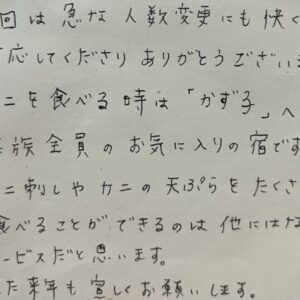 回は急な人数変更にも快く
応してくださりありがとうございま
ニを食べる時は「かず子」へ
族全員のお気に入りの宿です
ニ刺しやカニの天ぷらをたくさ
食べることができるのは他にはな
ービスだと思います。
た来年も宜しくお願いします。